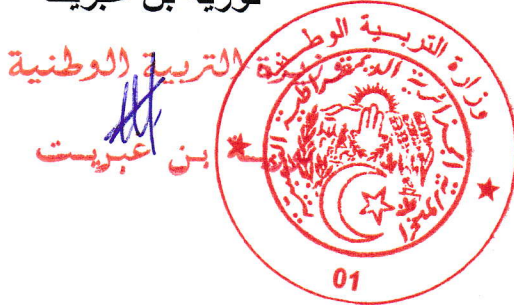 نورية بن غبريت
وزيرة التربية الوطنية
نورية بن غبريت
وزارة التربية الوطنية
الجمهورية الجزائرية الديمقراطية الشعبية
01